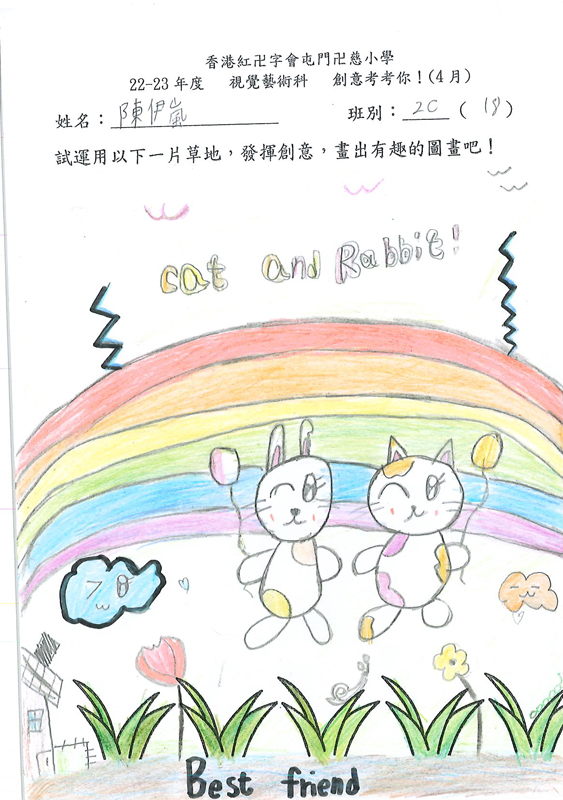 香港紅卍字會屯門卍慈小學
22-23 年度 視覺藝術科 創意考考你！(4 月)
姓名：陳伊嵐 班別：2C (18)
試運用以下一片草地，發揮創意，畫出有趣的圖畫吧！
cat and Rabbit!
Best friend